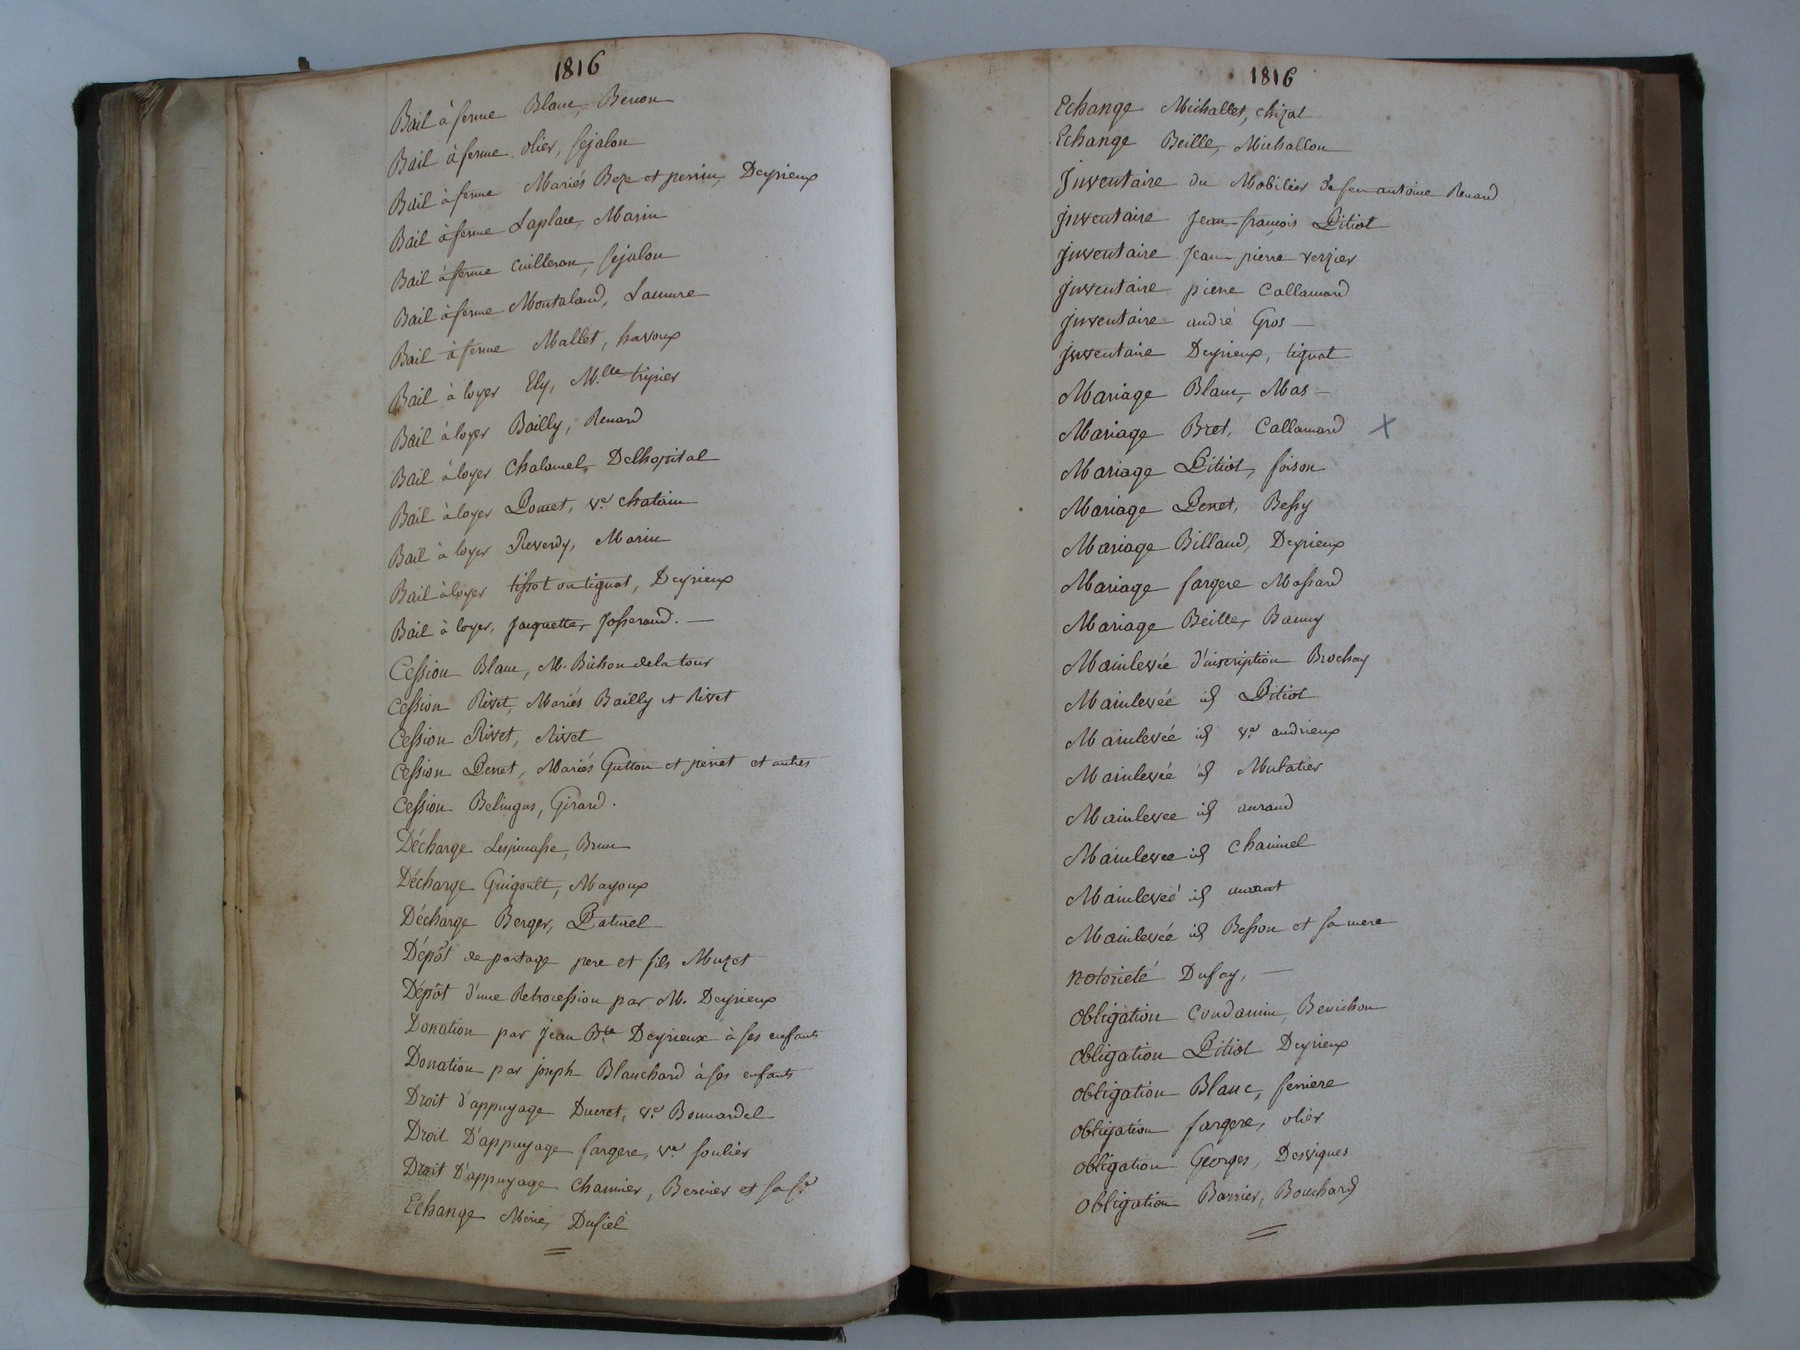 1816
Bail à ferme Blanc, Benon
Bail à ferme olier, sejalon
Bail à ferme Mariés Beze et perrin, Deyrieux
Bail à ferme Laplace, Marin
Bail à ferme Cuilleron, sejalon
Bail à ferme Montaland, Lamure
Bail à ferme Mallet, havoux
Bail à loyer Ely, M.lle
Bail à loyer Bailly, Renard
Bail à loyer Chalamel, Delhopital
Bail à loyer Pomet, ve. chatain
Bail à loyer Reverdy, Marin
Bail à loyer tissot ou tignat, Deyrieux
Bail à loyer, Jaquette, Josserand. —
Cession Blanc, M. Bichon de la tour
Cession Rivet, Mariés Bailly et Rivet
Cession Rivet, Rivet
Cession Perret, Mariés Gutton et perret et autres
Cession Belingas, Girard.
Décharge Lespinasse, Brun
Décharge Guigoult, Mayoux
Décharge Berger, Paturel
Dépôt de partage pere et fils Muzet
Dépôt d'une Retrocession par M. Deyrieux
Donation par Jean Bte Deyrieux à ses enfants
Donation par joseph Blanchard à ses enfants
Droit d'appuyage Ducret, ve. Bonnardel
Droit D'appuyage fargere, ve soulier
Droit D'appuyage Charnier, Bernier et sa sr
Echange Mérie, Dufiel
1816
Echange Michallet, chizat
Echange Beille, Michallon
Inventaire du Mobilier de feu antoine Renard
Inventaire Jean-françois Pitiot
Inventaire Jean-pierre verzier
Inventaire pierre Callamard
Inventaire andré Gros —
Inventaire Deyrieux, tignat
Mariage Blanc, Mas —
Mariage Bret, Callamard X
Mariage Pitiot, foison
Mariage Perret, Bessy
Mariage Billaud, Deyrieux
Mariage fargere Massard
Mariage Beille,
Mainlevée d'inscription Brochay
Mainlevée id Pitiot
Mainlevée id ve andrieux
Mainlevée id Mulatier
Mainlevee id auraud
Mainlevee id
Mainlevée id
Mainlevée id Besson et sa mere
Notorieté Dufay, —
Obligation Condamin, Benichon
Obligation Pitiot Deyrieux
Obligation Blanc, ferriere
Obligation fargere, olier
Obligation Georges, Desvignes
Obligation Barrier, Bouchard